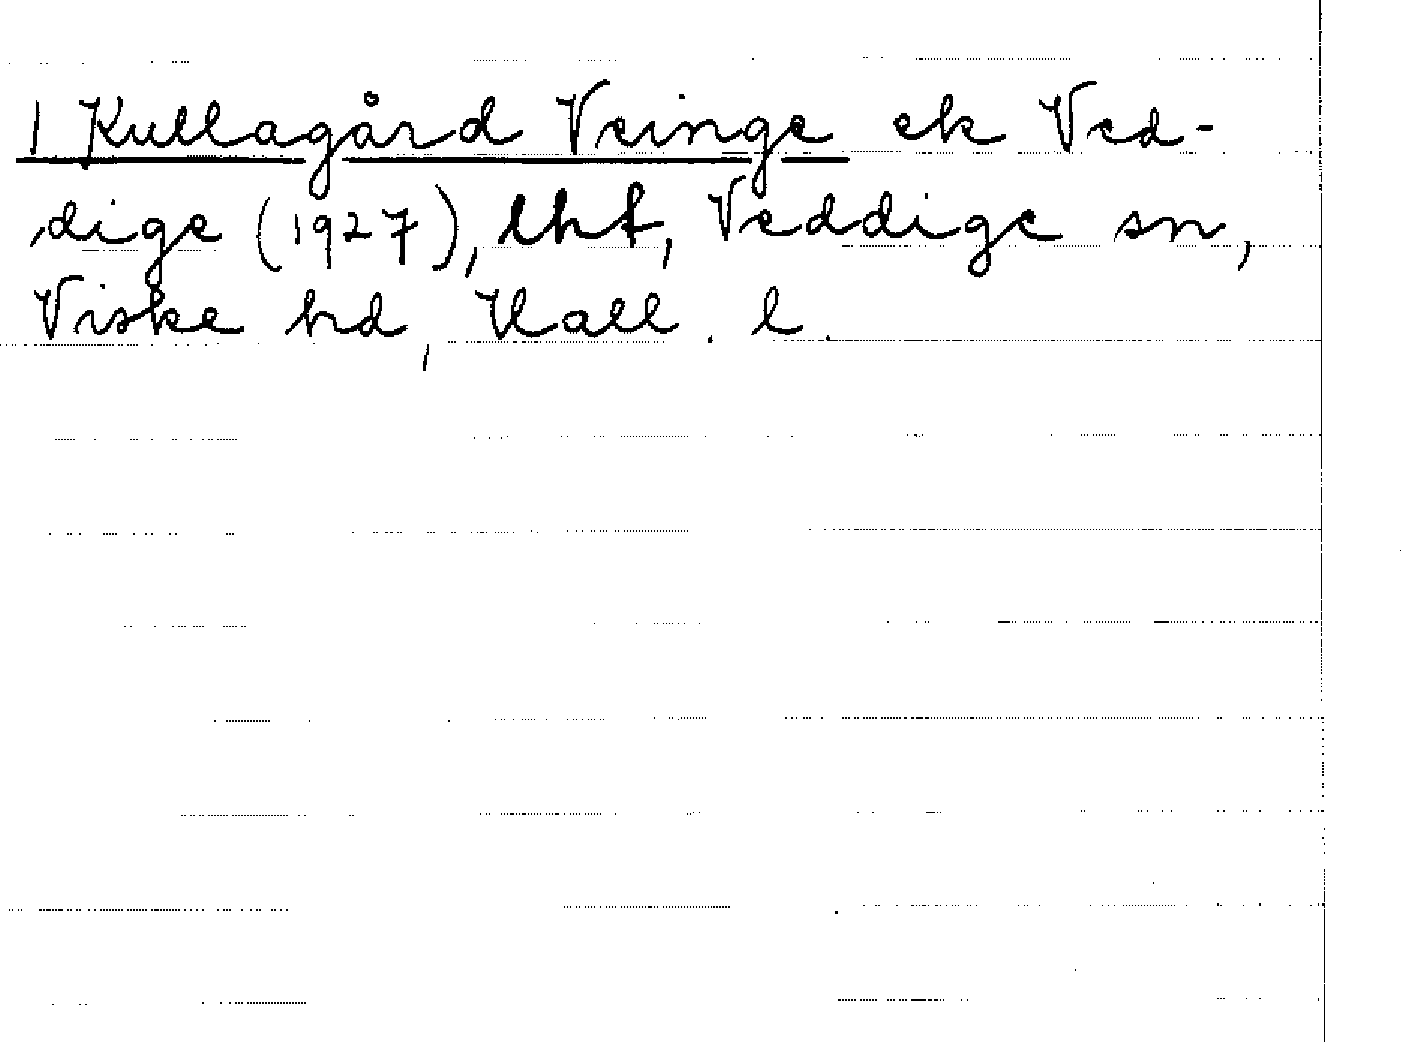 1 Kullagård Veinge ek Ved-
dige (1927), lht, Veddige sn,
Viske hd, Hall. l.